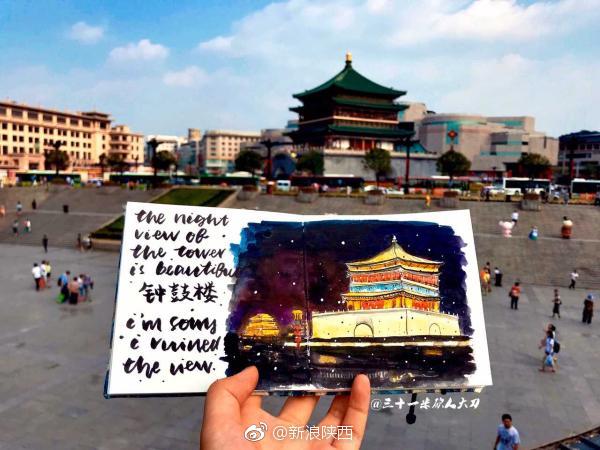 the night
view of
the tower
is beautiful
钟鼓楼
i'm sorry
i ruined
the view.
@三十一块你人大刀
@新浪陕西